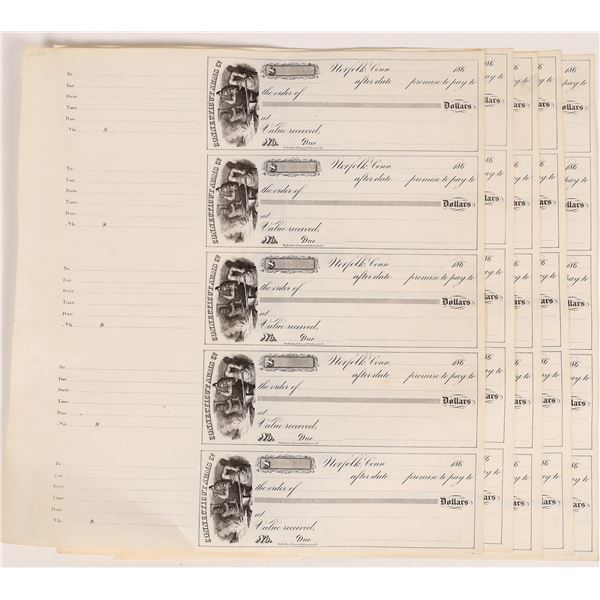 To
For
Date
Time
Due
No. $
CONNECTICUT ARMS Co
$ Norfolk, Conn 186
after date promise to pay to
the order of
Dollars
at
Value received,
No. Due
To
For
Date
Time
Due
No. $
CONNECTICUT ARMS Co
$ Norfolk, Conn 186
after date promise to pay to
the order of
Dollars
at
Value received,
No. Due
To
For
Date
Time
Due
No. $
CONNECTICUT ARMS Co
$ Norfolk, Conn 186
after date promise to pay to
the order of
Dollars
at
Value received,
No. Due
To
For
Date
Time
Due
No. $
CONNECTICUT ARMS Co
$ Norfolk, Conn 186
after date promise to pay to
the order of
Dollars
at
Value received,
No. Due
To
For
Date
Time
Due
No. $
CONNECTICUT ARMS Co
$ Norfolk, Conn 186
after date promise to pay to
the order of
Dollars
at
Value received,
No. Due